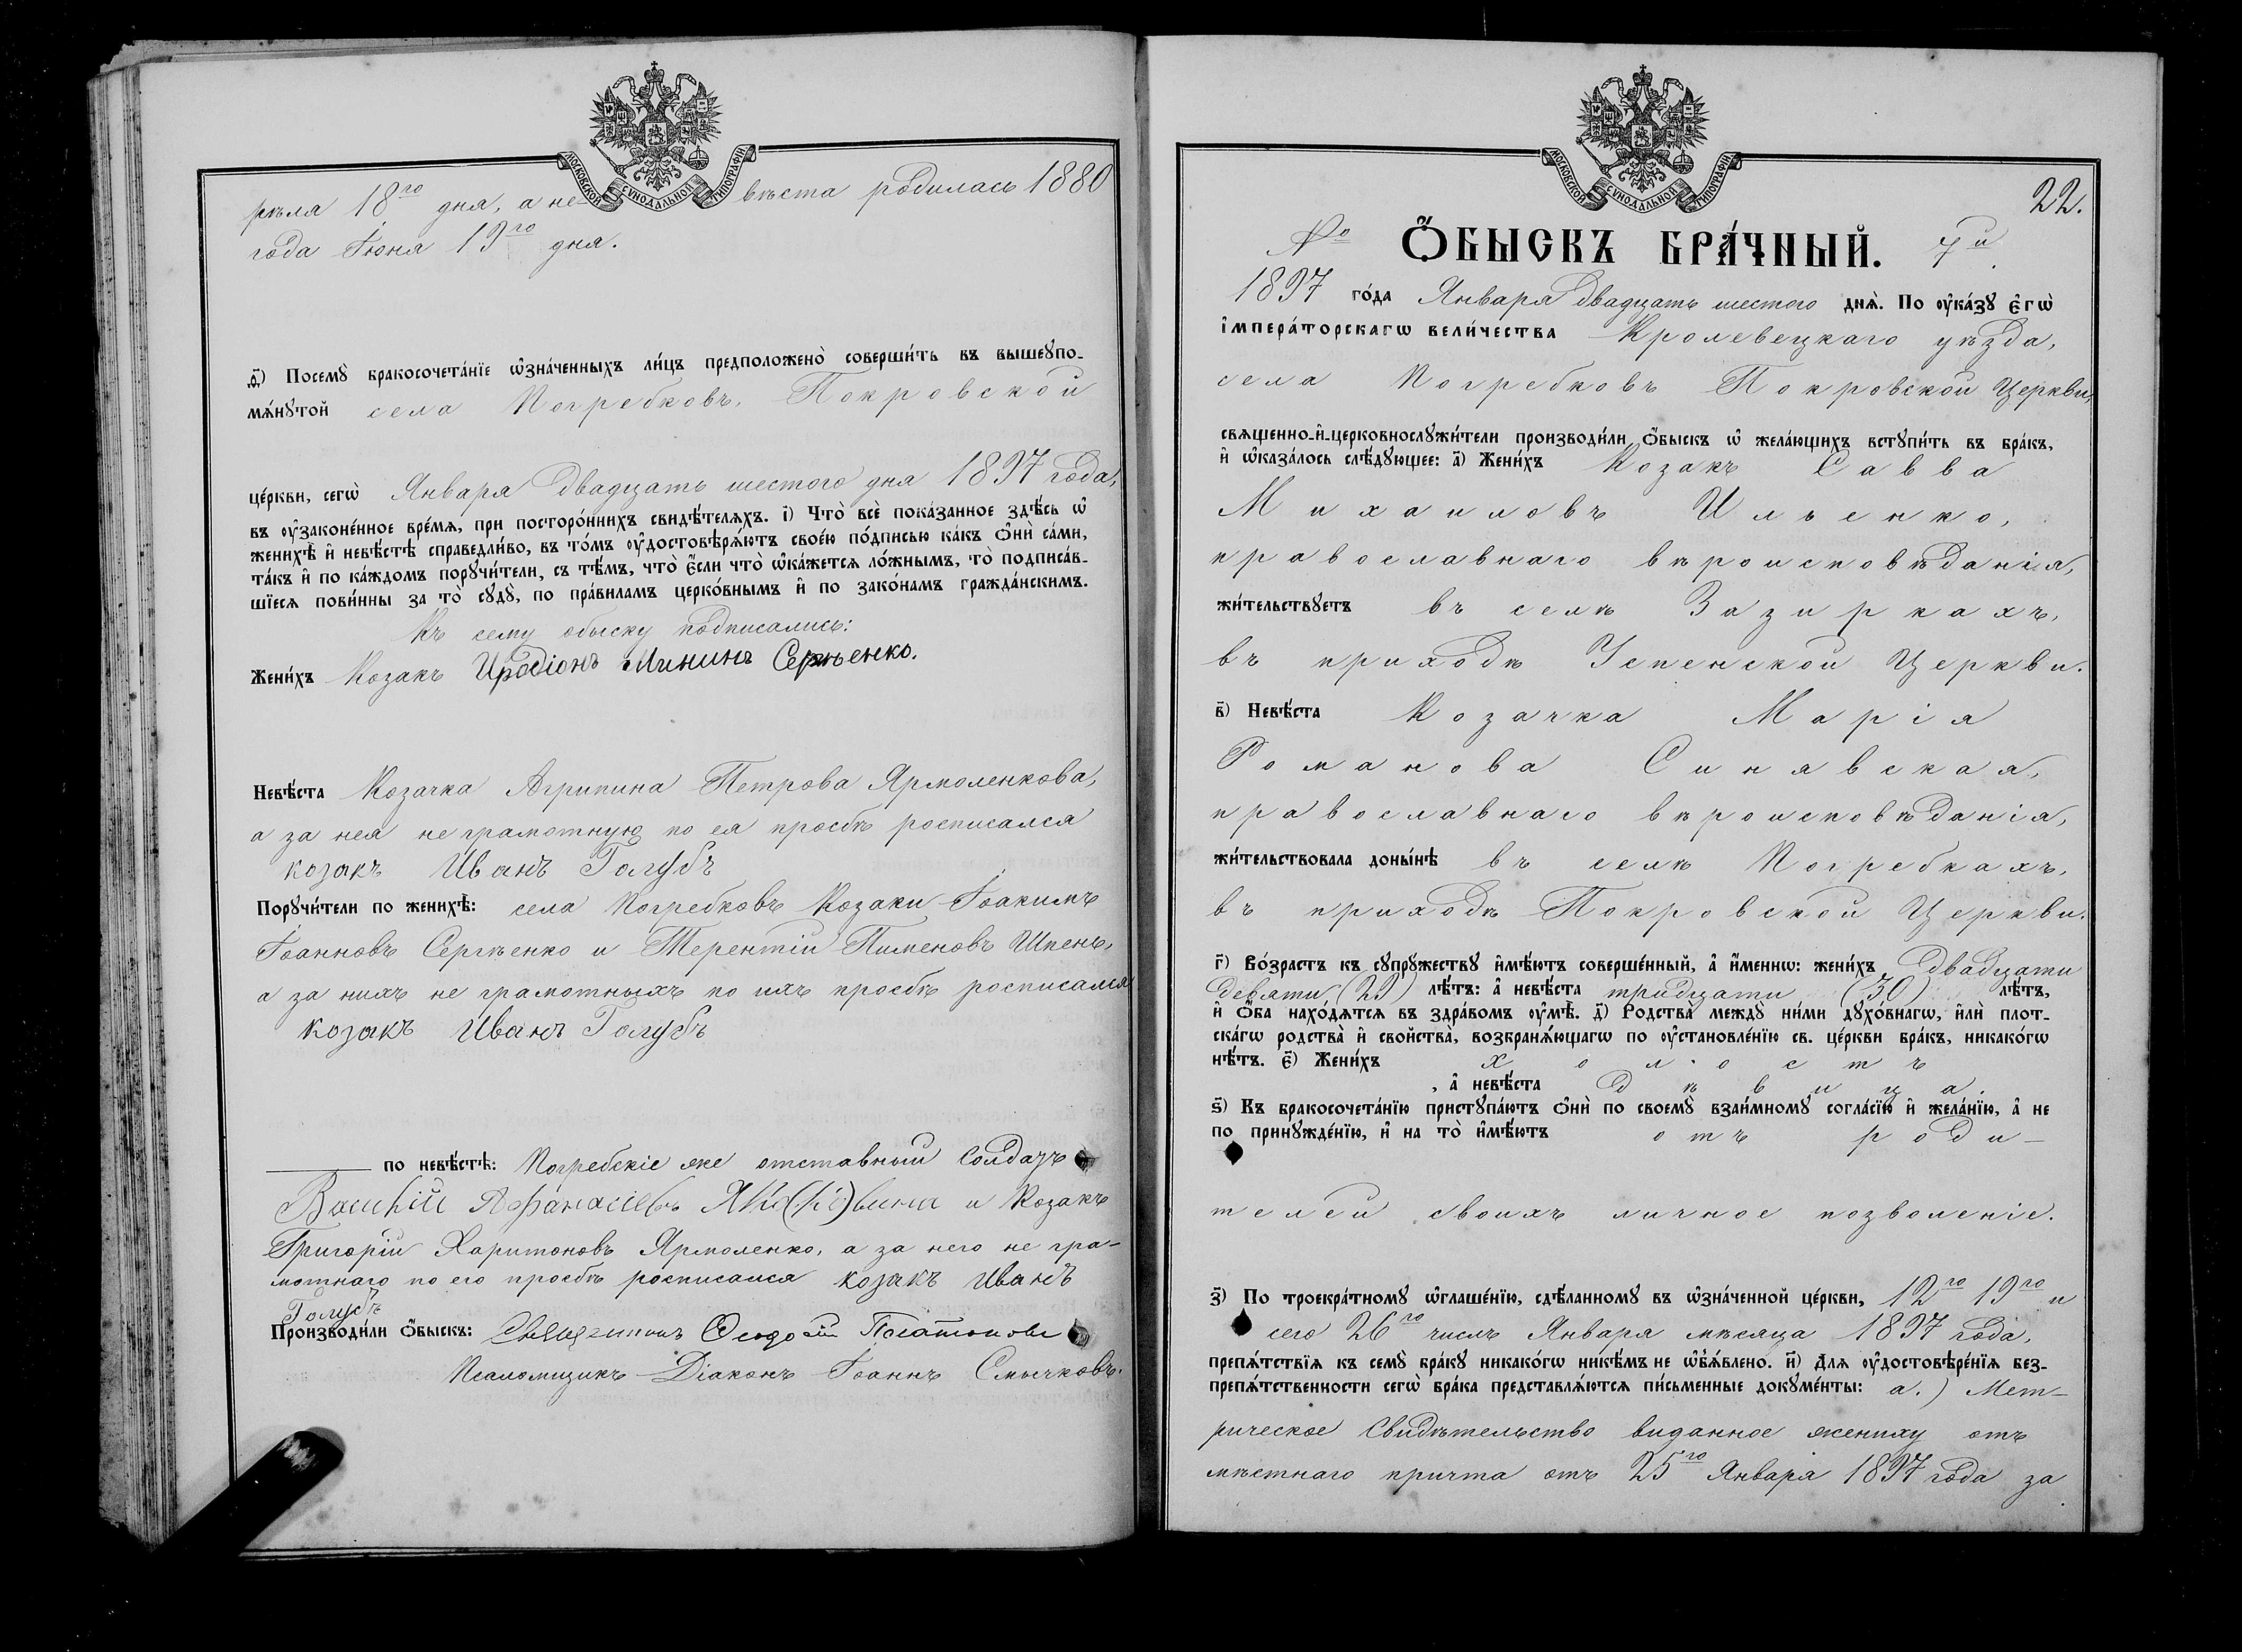 МОСКОВСКОЙ СѴНОДАЛЬНОЙ ТИПОГРАФІИ
рѣля 18го дня, а не- вѣста родилась 1880
года Іюня 19го дня.
д҃) Посемꙋ̀ бракосочета́нїе ѡ҆зна́ченныхъ ли́цъ предположено̀ соверши́ть въ вышеꙋпо-
мѧ́нꙋтой села Погребковъ, Покровской
це́ркви, сегѡ̀ Января двадцать шестого дня 1897 года,
въ ᲂу҆законе́нное вре́мѧ, при посторо́ннихъ свидѣ́телѧхъ. і҃) Что̀ всѐ пока́занное здѣ́сь ѡ҆
женихѣ̀ и҆ невѣ́стѣ справедли́во, въ то́мъ ᲂу҆достовѣрѧ́ютъ свое́ю по́дписью ка́къ ѻ҆нѝ са́ми,
та́къ и҆ по ка́ждомъ порꙋчи́тели, съ тѣ́мъ, что є҆́сли что̀ ѡ҆ка́жетсѧ ло́жнымъ, то̀ подписа́в-
шїесѧ пови́нны за то̀ сꙋдꙋ̀, по пра́виламъ церко́внымъ и҆ по зако́намъ гражда́нскимъ.
Къ сему обыску подписались:
Жени́хъ Козакъ Иродіонъ Мининъ Сергѣенко.
Невѣ́ста Козачка Агрипина Петрова Ярмоленкова,
а за нея не грамотную по ея просбѣ росписался
козакъ Иванъ Голубъ
Порꙋчи́тели по женихѣ̀: села Погребковъ Козаки Іоакимъ
Іоанновъ Сергѣенко и Терентій Пименовъ Шпень,
а за нихъ не грамотныхъ по ихъ просбѣ росписался
козакъ Иванъ Голубъ
по невѣ́стѣ: Погребскіе же отставный Солдатъ
Василій Афанасіевъ и Козакъ
Григорій Харитоновъ Ярмоленко, а за него не гра-
мотнаго по его просбѣ росписался козакъ Иванъ
Голубъ
Производи́ли ѻ҆́быскъ: Священникъ Ѳеодосій Платоновъ
Псаломщикъ Діаконъ Іоаннъ Смычковъ.
МОСКОВСКОЙ СѴНОДАЛЬНОЙ ТИПОГРАФІИ
22.
№ Ѻ҆́БЫСКЪ БРА́ЧНЫЙ. 7й.
1897 го́да Января двадцать шестого днѧ̀. По ᲂу҆ка́зꙋ є҆гѡ̀
і҆мпера́торскагѡ вели́чества Кролевецкаго уѣзда,
села Погребковъ Покровской Церкви,
свѧщенно-и҆-церковнослꙋжи́тели производи́ли ѻ҆́быскъ ѡ҆ жела́ющихъ встꙋпи́ть въ бра́къ,
и҆ ѡ҆каза́лось слѣ́дꙋющее: а҃) Жени́хъ Козакъ Савва
Михаиловъ Ильенко,
православнаго вѣроисповѣданія,
жи́тельствꙋетъ въ селѣ Зазиркахъ,
въ приходѣ Успенской Церкви.
в҃) Невѣ́ста Козачка Марія
Романова Синявская,
православнаго вѣроисповѣданія,
жи́тельствовала доны́нѣ въ селѣ Погребкахъ,
въ приходѣ Покровской Церкви.
г҃) Во́зрастъ къ сꙋпрꙋ́жествꙋ и҆мѣ́ютъ соверше́нный, а҆ и҆́менно: жени́хъ двадцати
девяти (29) лѣ́тъ: а҆ невѣ́ста тридцати (30) лѣ́тъ,
и҆ ѻ҆́ба нахо́дѧтсѧ въ здра́вомъ ᲂу҆мѣ̀. д҃) Родства̀ междꙋ̀ ни́ми дꙋхо́внагѡ, и҆лѝ плот-
ска́гѡ родства̀ и҆ свойства̀, возбранѧ́ющагѡ по ᲂу҆становле́нїю св. це́ркви бра́къ, никако́гѡ
нѣ́тъ. є҃) Жени́хъ холостъ
, а҆ невѣ́ста дѣвица.
ѕ҃) Къ бракосочета́нїю пристꙋпа́ютъ ѻ҆нѝ по своемꙋ̀ взаи́мномꙋ согла́сїю и҆ жела́нїю, а҆ не
по принꙋжде́нїю, и҆ на то̀ и҆мѣ́ютъ отъ роди-
телей своихъ личное позволеніе.
з҃) По троекра́тномꙋ ѡ҆глаше́нїю, сдѣ́ланномꙋ въ ѡ҆зна́ченной це́ркви, 12го 19го и
сего 26го числъ Января мѣсяца 1897 года,
препѧ́тствїѧ къ семꙋ̀ бра́кꙋ никако́гѡ никѣ́мъ не ѡ҆б̾ѧ́влено. и҃) Длѧ ᲂу҆достовѣре́нїѧ без-
препѧ́тственности сегѡ̀ бра́ка представлѧ́ютсѧ пи́сьменные докꙋме́нты: а.) Мет-
рическое Свидѣтельство виданное жениху отъ
мѣстнаго причта отъ 25го Января 1897 года за